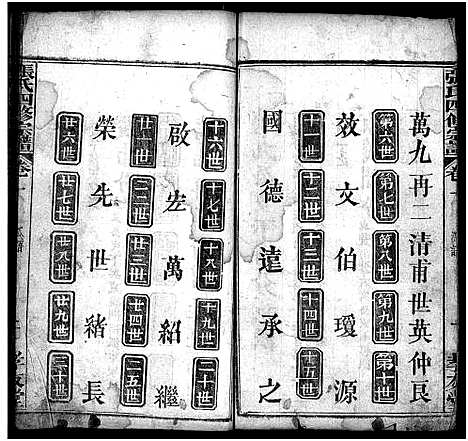 張氏四修宗譜 卷一
萬九再二清甫世英仲良
第六世 第七世 第八世 第九世 第十世
效文伯瓊源
十一世 十二世 十三世 十四世 十五世
國德遠承之
十六世 十七世 十八世 十九世 二十世
啟宏萬紹繼
廿一世 二二世 廿三世 廿四世 二五世
榮先世緒長
廿六世 廿七世 廿八世 廿九世 三十世
張氏四修宗譜 卷一 孝友堂